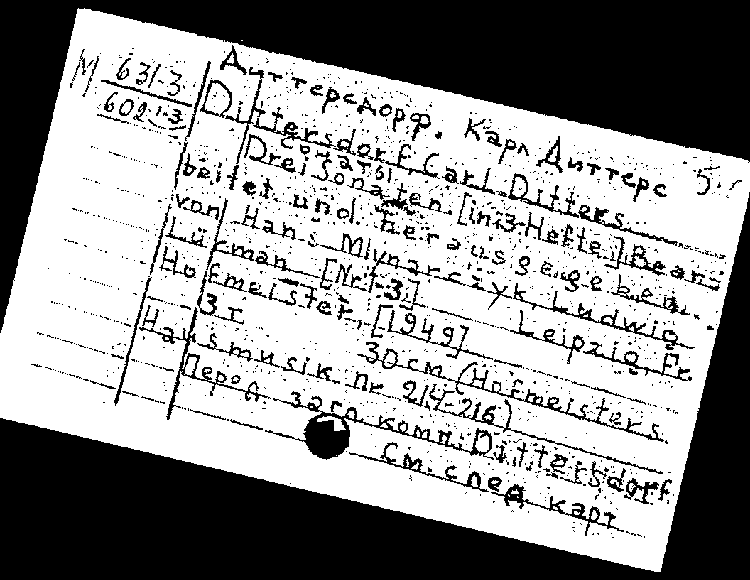 Диттерсдорф, Карл Диттерс 5.
М 631-3
602 1-3
Dittersdorf, Carl Ditters
Сонаты
Drei Sonaten [in 3 Hefte.] Bear=
beitet und herausgegeben
von Hans Mlynarczyk, Ludwig
Lürman [Nr 1-3.] Leipzig, Fr.
Hofmeister, [1949]
3 т. 30 см (Hofmeisters
Hausmusik nr 214-216)
Перед загл. комп.: Dittersdorf
См. след карт